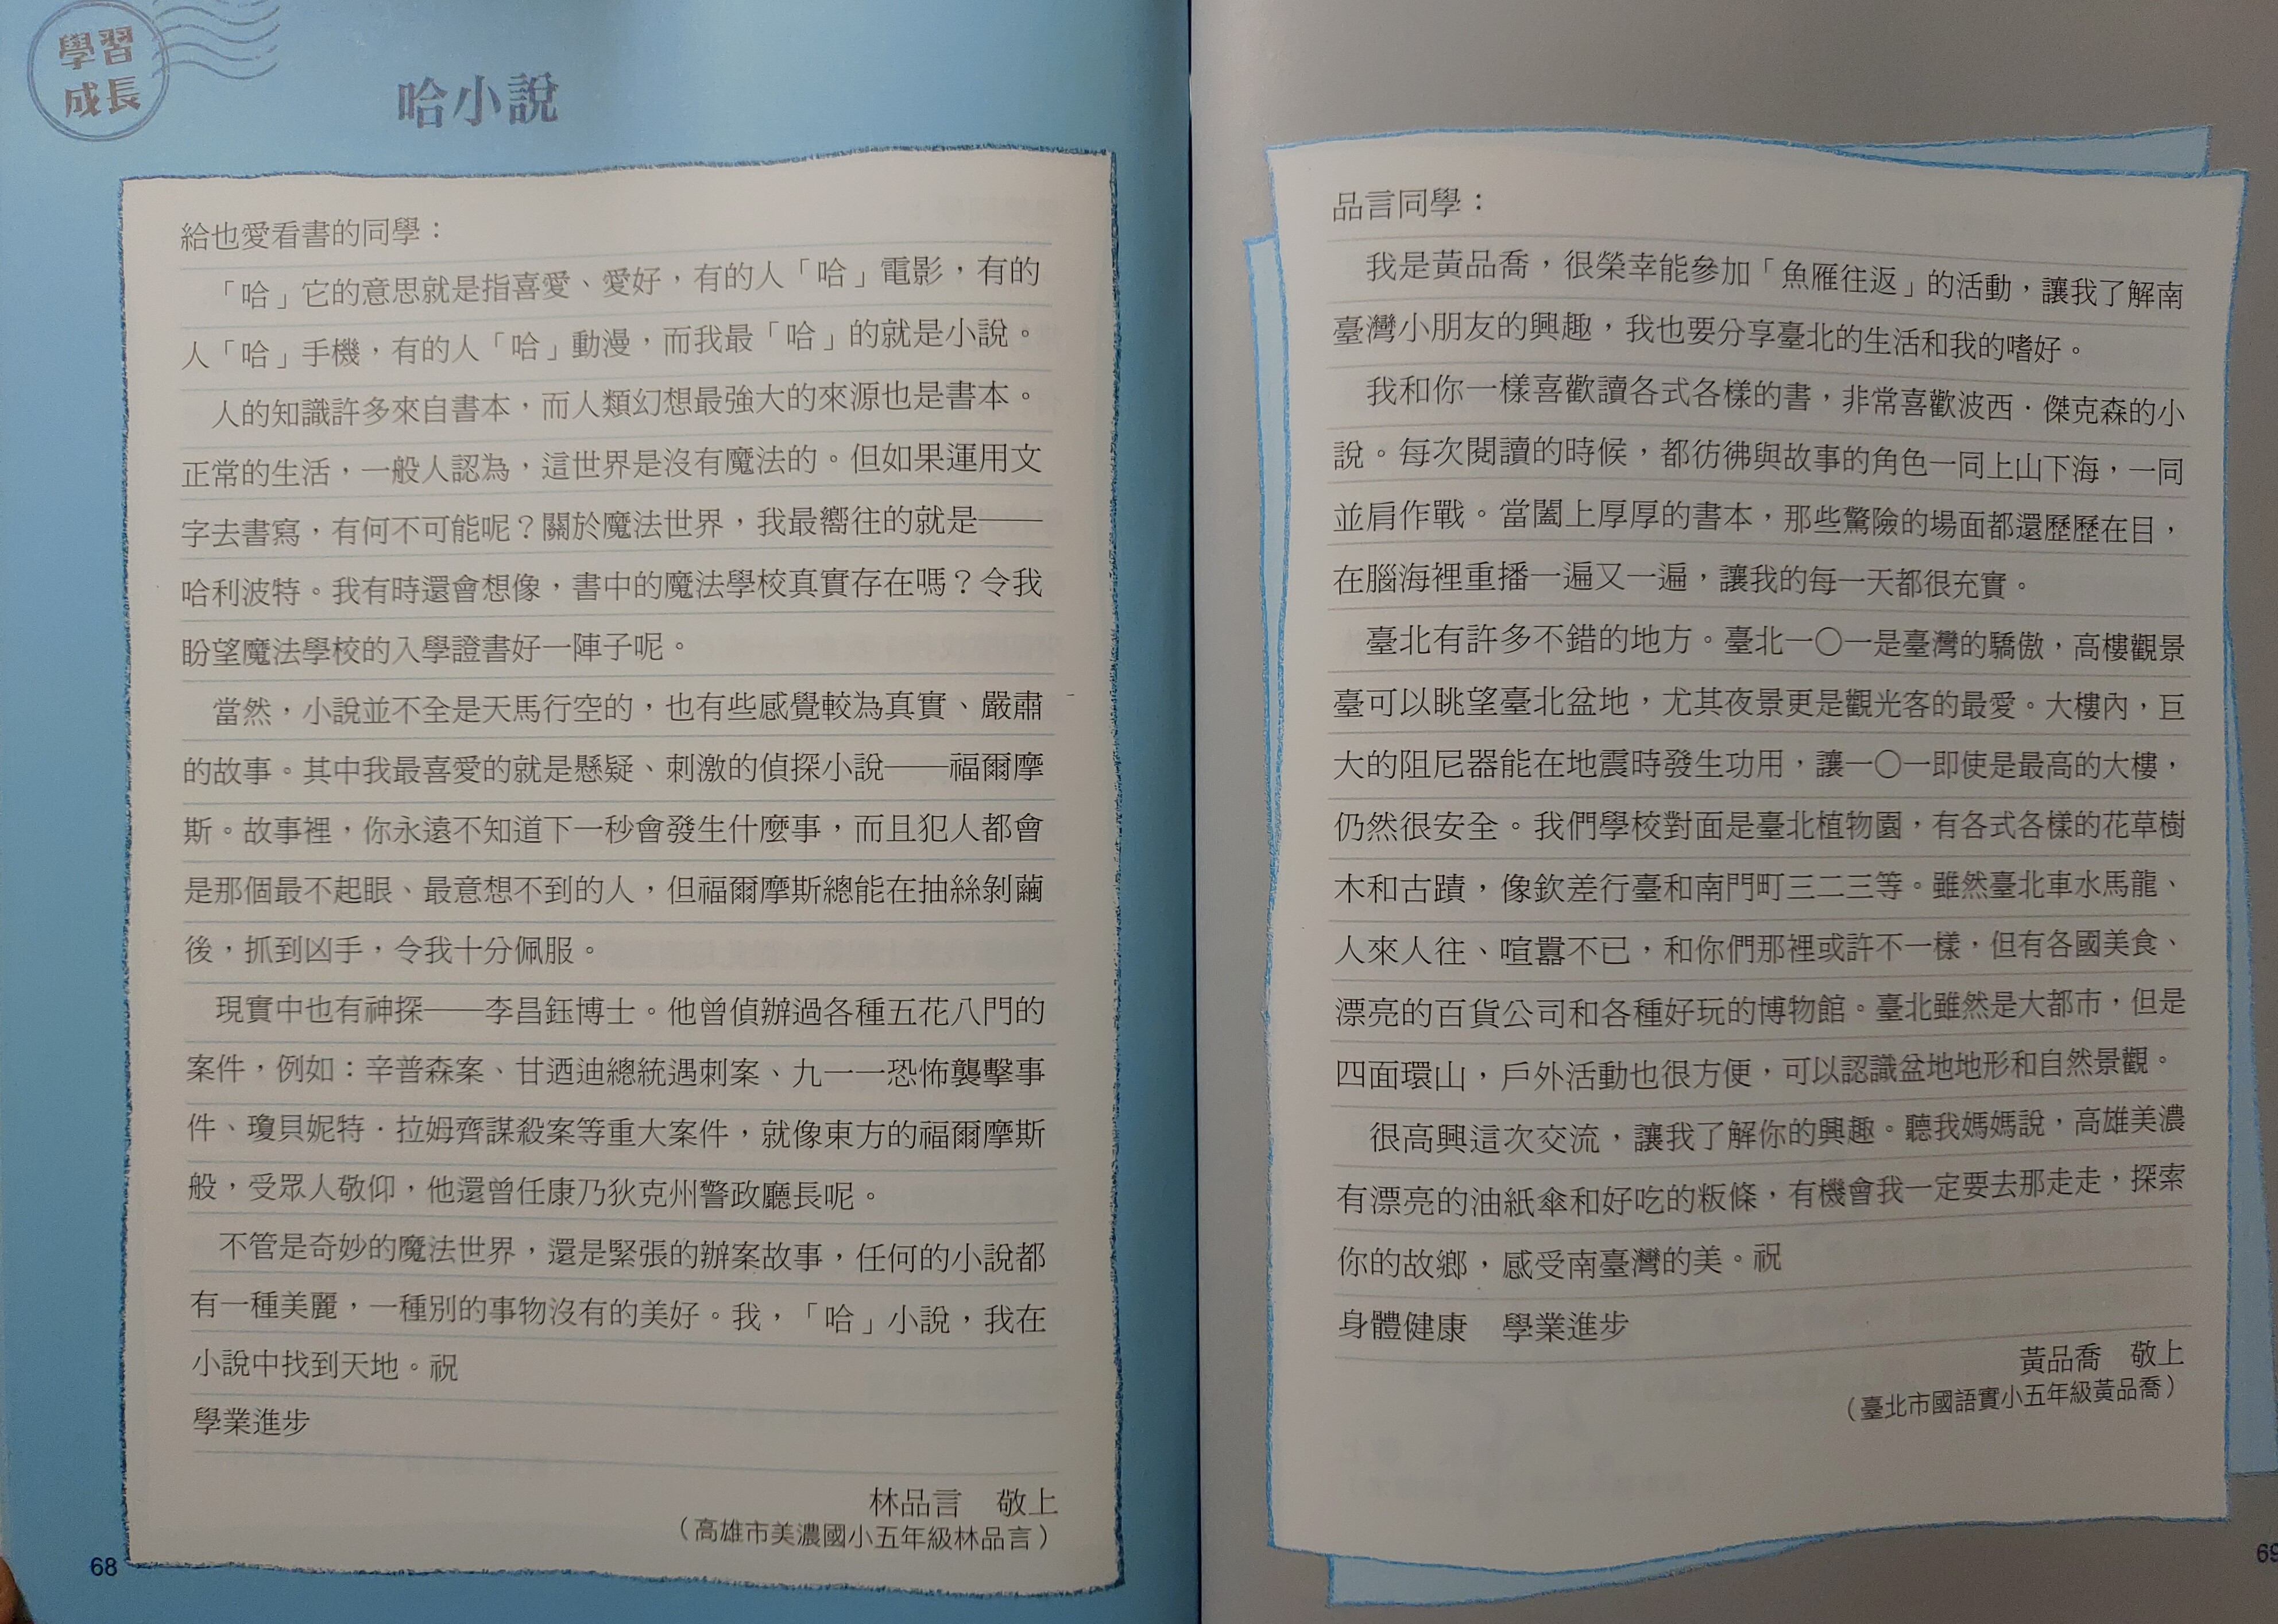 學習
成長
哈小說
給也愛看書的同學：
「哈」它的意思就是指喜愛、愛好，有的人「哈」電影，有的
人「哈」手機，有的人「哈」動漫，而我最「哈」的就是小說。
人的知識許多來自書本，而人類幻想最強大的來源也是書本。
正常的生活，一般人認為，這世界是沒有魔法的。但如果運用文
字去書寫，有何不可能呢？關於魔法世界，我最嚮往的就是——
哈利波特。我有時還會想像，書中的魔法學校真實存在嗎？令我
盼望魔法學校的入學證書好一陣子呢。
當然，小說並不全是天馬行空的，也有些感覺較為真實、嚴肅
的故事。其中我最喜愛的就是懸疑、刺激的偵探小說——福爾摩
斯。故事裡，你永遠不知道下一秒會發生什麼事，而且犯人都會
是那個最不起眼、最意想不到的人，但福爾摩斯總能在抽絲剝繭
後，抓到凶手，令我十分佩服。
現實中也有神探——李昌鈺博士。他曾偵辦過各種五花八門的
案件，例如：辛普森案、甘迺迪總統遇刺案、九一一恐怖襲擊事
件、瓊貝妮特．拉姆齊謀殺案等重大案件，就像東方的福爾摩斯
般，受眾人敬仰，他還曾任康乃狄克州警政廳長呢。
不管是奇妙的魔法世界，還是緊張的辦案故事，任何的小說都
有一種美麗，一種別的事物沒有的美好。我，「哈」小說，我在
小說中找到天地。祝
學業進步
林品言　敬上
（高雄市美濃國小五年級林品言）
68
品言同學：
我是黃品喬，很榮幸能參加「魚雁往返」的活動，讓我了解南
臺灣小朋友的興趣，我也要分享臺北的生活和我的嗜好。
我和你一樣喜歡讀各式各樣的書，非常喜歡波西．傑克森的小
說。每次閱讀的時候，都彷彿與故事的角色一同上山下海，一同
並肩作戰。當闔上厚厚的書本，那些驚險的場面都還歷歷在目，
在腦海裡重播一遍又一遍，讓我的每一天都很充實。
臺北有許多不錯的地方。臺北一〇一是臺灣的驕傲，高樓觀景
臺可以眺望臺北盆地，尤其夜景更是觀光客的最愛。大樓內，巨
大的阻尼器能在地震時發生功用，讓一〇一即使是最高的大樓，
仍然很安全。我們學校對面是臺北植物園，有各式各樣的花草樹
木和古蹟，像欽差行臺和南門町三二三等。雖然臺北車水馬龍、
人來人往、喧囂不已，和你們那裡或許不一樣，但有各國美食、
漂亮的百貨公司和各種好玩的博物館。臺北雖然是大都市，但是
四面環山，戶外活動也很方便，可以認識盆地地形和自然景觀。
很高興這次交流，讓我了解你的興趣。聽我媽媽說，高雄美濃
有漂亮的油紙傘和好吃的粄條，有機會我一定要去那走走，探索
你的故鄉，感受南臺灣的美。祝
身體健康　學業進步
黃品喬　敬上
（臺北市國語實小五年級黃品喬）
69